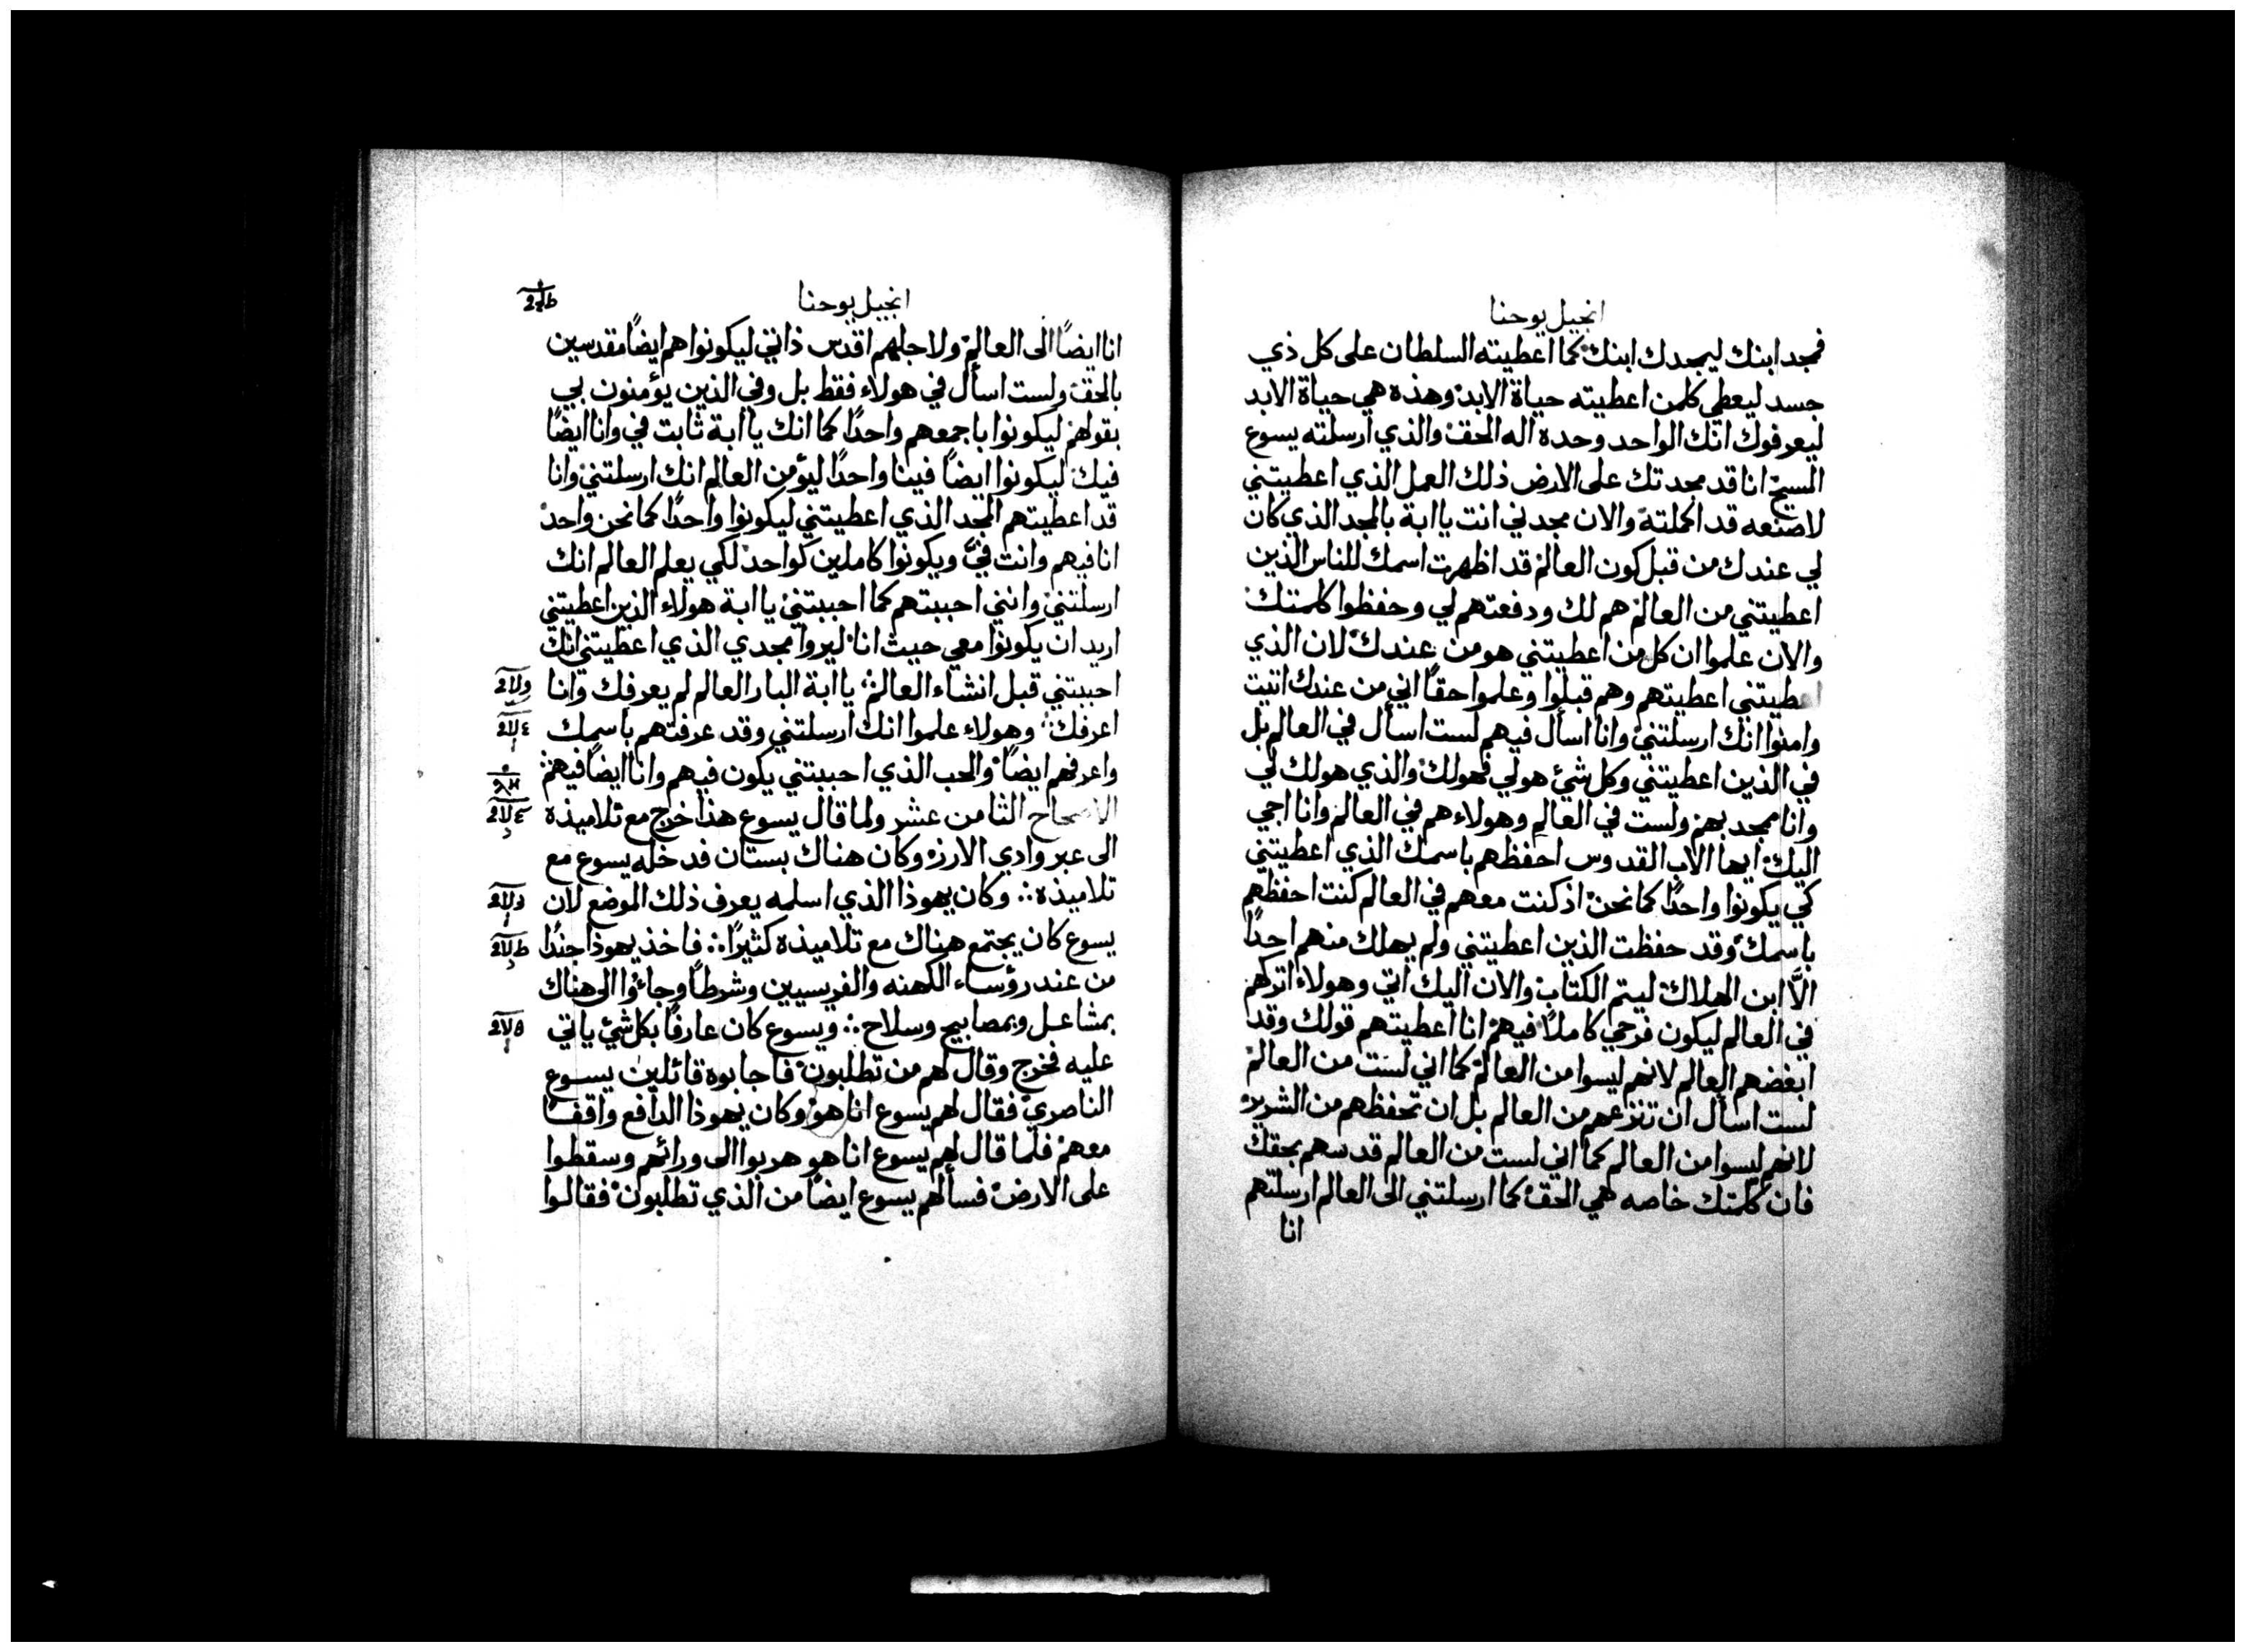 انجيل يوحنا
فمجد ابنك ليمجدك ابنك كما اعطيته السلطان على كل ذي
جسد ليعطي كلمن اعطيته حياة الابد وهذه هي حياة الابد
ليعرفوك انك الواحد وحده اله الحق والذي ارسلته يسوع
المسيح انا قد مجدتك على الارض ذلك العمل الذي اعطيتني
لاصنعه قد اكملته والان مجدني انت يا ابة بالمجد الذي كان
لي عندك من قبل كون العالم قد اظهرت اسمك للناس الذين
اعطيتني من العالم هم لك ودفعتهم لي وحفظوا كلمتك
والان علموا ان كل من اعطيتني هو من عندك لان الذي
اعطيتني اعطيتهم وهم قبلوا وعلموا حقاً اني من عندك اتيت
وامنوا انك ارسلتني وانا اسأل فيهم لست اسأل في العالم بل
في الذين اعطيتني وكل شئ هولي فهولك والذي هولك لي
وانا ممجد بهم ولست في العالم وهولاء هم في العالم وانا اجي
اليك ايها الاب القدوس احفظهم باسمك الذي اعطيتني
كي يكونوا واحدًا كما نحن اذ كنت معهم في العالم كنت احفظهم
باسمك وقد حفظت الذين اعطيتني ولم يهلك منهم احدًا
الَّا ابن الهلاك ليتم الكتاب والان اليك اتي وهولاء اتركهم
في العالم ليكون فرحي كاملاً فيهم انا اعطيتهم قولك وقد
ابغضهم العالم لانهم ليسوا من العالم كما اني لست من العالم
لست اسأل ان تنزعهم من العالم بل ان تحفظهم من الشرير
لانهم ليسوا من العالم كما اني لست من العالم قدسهم بحقك
فان كلمتك خاصه هي الحق كما ارسلتني الى العالم ارسلتهم
انا
انجيل يوحنا
انا ايضاً الى العالم ولاجلهم اقدس ذاتي ليكونوا هم ايضاً مقدسين
بالحق ولست اسأل في هولاء فقط بل وفي الذين يؤمنون بي
بقولهم ليكونوا باجمعهم واحدًا كما انك يا ابة ثابت في وانا ايضًا
فيك ليكونوا ايضاً فينا واحدًا ليؤمن العالم انك ارسلتني وانا
قد اعطيتهم المجد الذي اعطيتني ليكونوا واحدًا كما نحن واحد
انا فيهم وانت فيَّ ويكونوا كاملين كواحد لكي يعلم العالم انك
ارسلتني وانني احببتهم كما احببتني يا ابة هولاء الذين اعطيتني
اريد ان يكونوا معي حيث انا ليروا مجدي الذي اعطيتني انك
احببتني قبل انشاء العالم يا ابة البار العالم لم يعرفك وانا
اعرفك وهولاء علموا انك ارسلتني وقد عرفتهم باسمك
واعرفهم ايضاً والحب الذي احببتني يكون فيهم وانا ايضاً فيهم
الاصحاح الثامن عشر ولما قال يسوع هذا خرج مع تلاميذه
الى عبر وادي الارز وكان هناك بستان فدخله يسوع مع
تلاميذه ∴ وكان يهوذا الذي اسلمه يعرف ذلك الموضع لان
يسوع كان يجتمع هناك مع تلاميذه كثيرًا ∴ فاخذ يهوذا جندًا
من عند رؤساء الكهنه والفريسيين وشرطاً وجاءوا الى هناك
بمشاعل وبمصابيح وسلاح ∴ ويسوع كان عارفًا بكل شئ ياتي
عليه فخرج وقال لهم من تطلبون فاجابوه قائلين يسوع
الناصري فقال لهم يسوع انا هو وكان يهوذا الدافع واقفًا
معهم فلما قال لهم يسوع انا هو هربوا الى ورائهم وسقطوا
على الارض فسألهم يسوع ايضًا من الذي تطلبون فقالوا